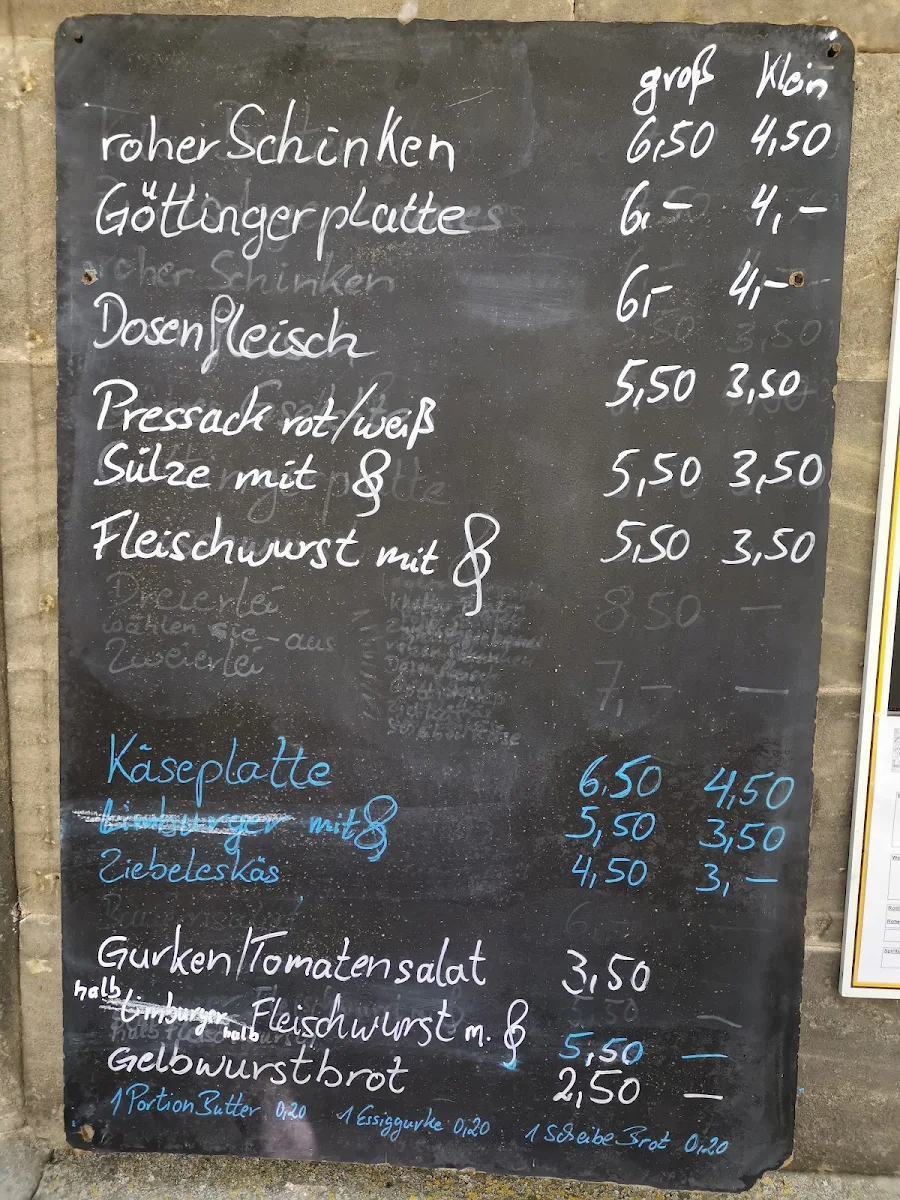 groß klein
roher Schinken 6,50 4,50
Göttinger platte 6,- 4,-
roher Schinken
6,- 4,-
Dosenfleisch
5,50 3,50
Pressack rot/weiß
Sülze mit 𝄞 5,50 3,50
Fleischwurst mit 𝄞 5,50 3,50
Dreierlei 8,50 —
wählen sie - aus
Zweierlei 7,- —
Käseplatte 6,50 4,50
Limburger mit 𝄞 5,50 3,50
Ziebeleskäs 4,50 3,-
Gurken/Tomatensalat 3,50
halb Limburger halb Fleischwurst m. 𝄞 5,50 —
Gelbwurstbrot 2,50 —
1 Portion Butter 0,20 1 Essiggurke 0,20 1 Scheibe Brot 0,20